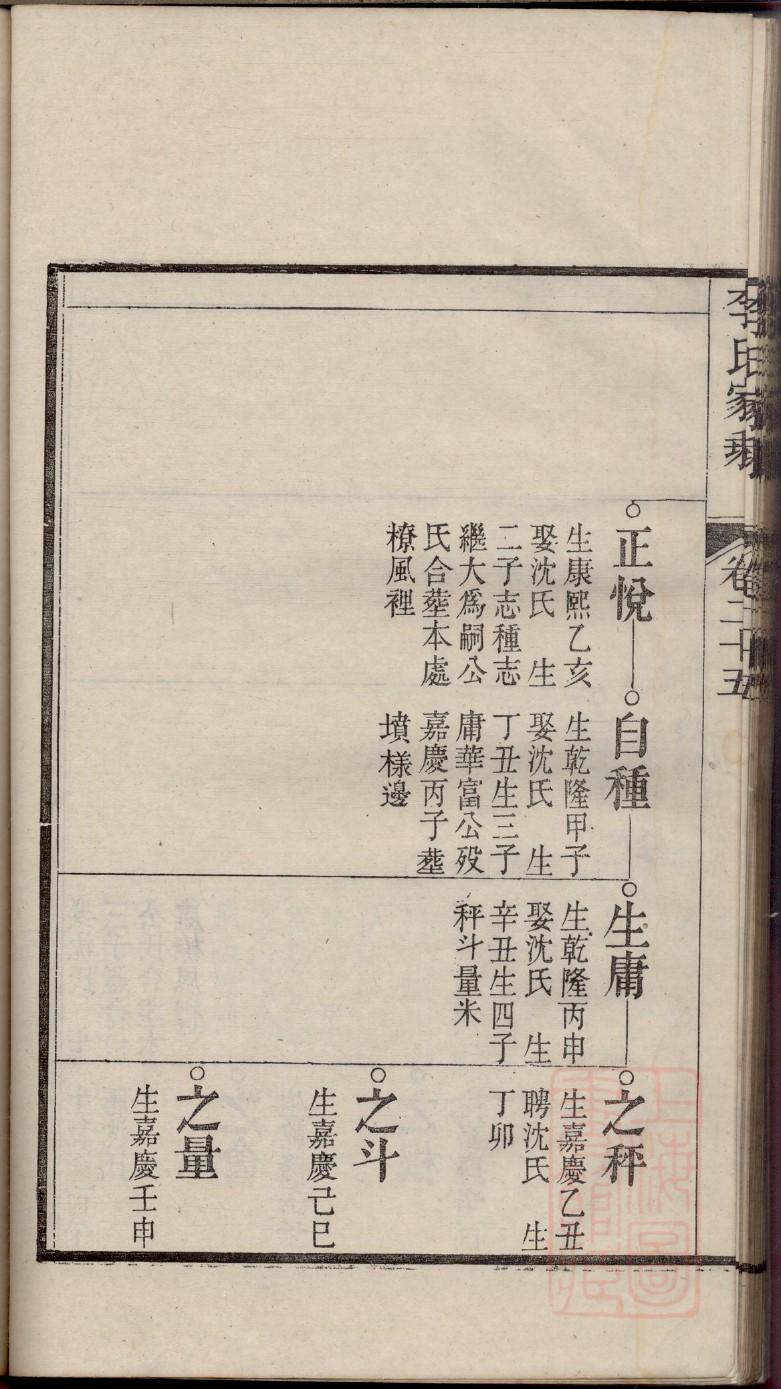 李氏家乘
卷二十五
正悅
生康熙乙亥
娶沈氏 生
二子志種志
繼大爲嗣公
氏合塟本處
橑風裡
自種
生乾隆甲子
娶沈氏 生
丁丑生三子
庸華富公殁
嘉慶丙子塟
墳樣邊
生庸
生乾隆丙申
娶沈氏 生
辛丑生四子
秤斗量米
之秤
生嘉慶乙丑
聘沈氏 生
丁卯
之斗
生嘉慶己巳
之量
生嘉慶壬申